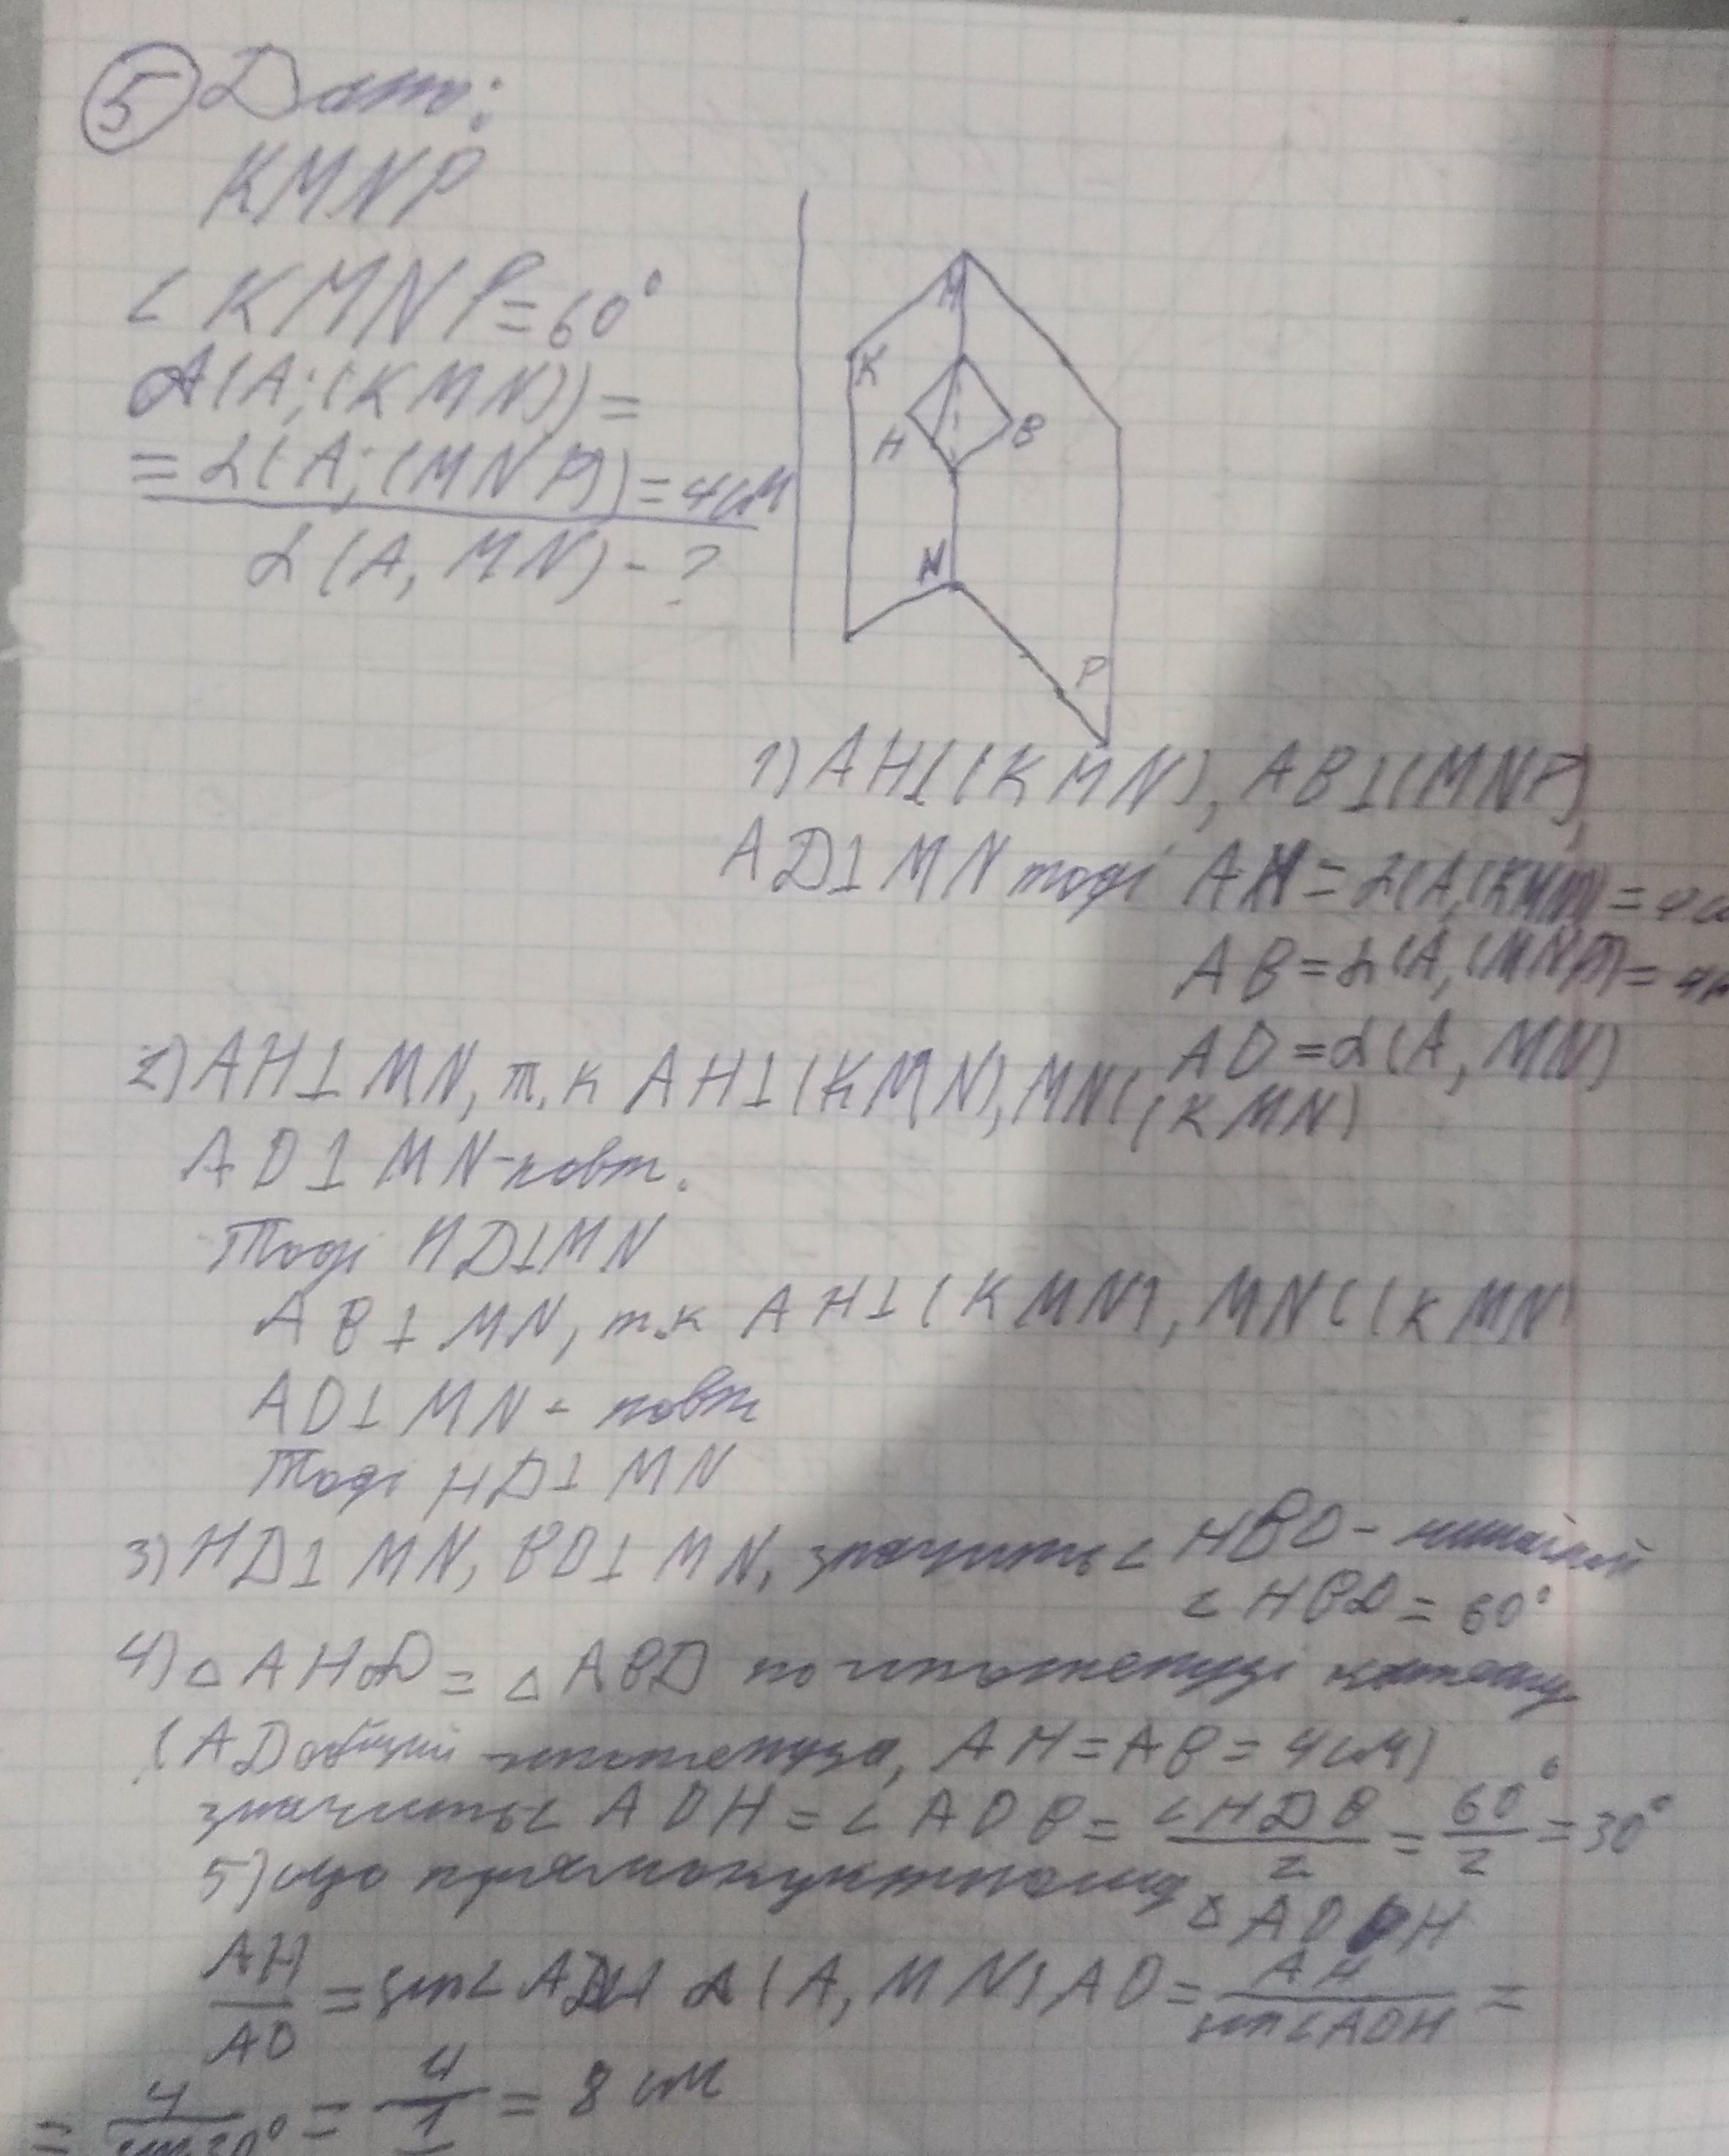 5 Дано:
KMNP
∠KMNP=60°
d(A;(KMN))=
=d(A;(MNP))=4см
d(A, MN)-?
M
K
H
B
N
P
1) AH⊥(KMN), AB⊥(MNP),
AD⊥MN тоді AH=d(A,(KMN))=4с
AB=d(A,(MNP))=4
AD=d(A, MN)
2) AH⊥MN, т.к AH⊥(KMN), MN⊂(KMN)
AD⊥MN-повт.
Тоді HD⊥MN
AB⊥MN, т.к AH⊥(KMN), MN⊂(KMN
AD⊥MN - повт
Тоді HD⊥MN
3) HD⊥MN, BD⊥MN, значить ∠HBD-
∠HBD=60°
4) △AHD=△ABD по гіпотенузі і катету
(AD общий гіпотенуза, AH=AB=4см)
значить ∠ADH=∠ADB=∠HDB/2=60°/2=30°
5) що прямокутному △ADH
AH/AD=sin∠ADH d(A, MN) AD=AH/sin∠ADH=
=4/sin30°=4/1=8 см